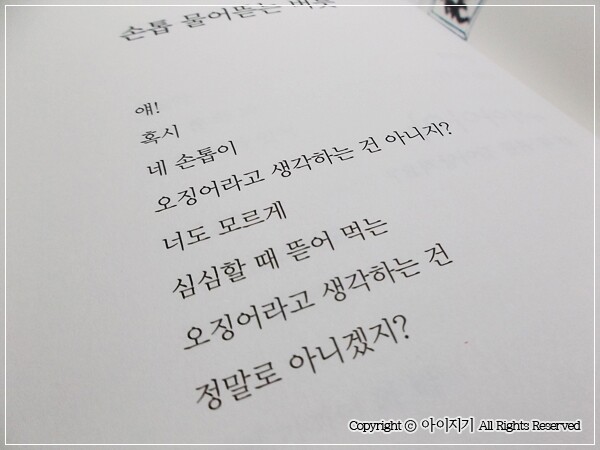 손톱 물어뜯는 버릇
얘!
혹시
네 손톱이
오징어라고 생각하는 건 아니지?
너도 모르게
심심할 때 뜯어 먹는
오징어라고 생각하는 건
정말로 아니겠지?
Copyright ⓒ 아이지기 All Rights Reserved